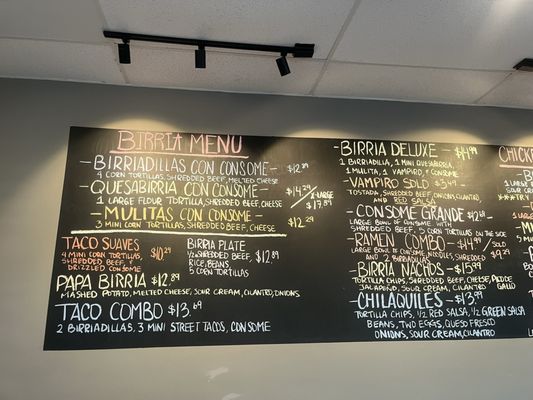 BIRRIA MENU
- BIRRIADILLAS CON CONSOME - $12.89
4 CORN TORTILLAS, SHREDDED BEEF, MELTED CHEESE
- QUESABIRRIA CON CONSOME - $14.29 / 2 LARGE $17.89
1 LARGE FLOUR TORTILLA, SHREDDED BEEF, CHEESE
- MULITAS CON CONSOME - $12.29
3 MINI CORN TORTILLAS, SHREDDED BEEF, CHEESE
TACO SUAVES $10.29
4 MINI CORN TORTILLAS,
SHREDDED BEEF,
DRIZZLED CONSOME
BIRRIA PLATE $12.89
1/2 SHREDDED BEEF,
RICE, BEANS,
5 CORN TORTILLAS
PAPA BIRRIA $12.89
MASHED POTATO, MELTED CHEESE, SOUR CREAM, CILANTRO, ONIONS
TACO COMBO $13.69
2 BIRRIADILLAS, 3 MINI STREET TACOS, CONSOME
- BIRRIA DELUXE - $14.99
2 BIRRIADILLA, 1 MINI QUESABIRRIA,
1 MULITA, 1 VAMPIRO, & CONSOME
- VAMPIRO SOLO $3.49 -
TOSTADA, SHREDDED BEEF, ONIONS, CILANTRO,
AND RED SALSA
- CONSOME GRANDE
LARGE BOWL OF CONSOME WITH
SHREDDED BEEF, 5 CORN TORTILLAS ON THE SIDE
- RAMEN COMBO - $14.49 / SOLO $9.29
LARGE BOWL OF CONSOME, NOODLES, SHREDDED
AND 2 BIRRIADILLAS
- BIRRIA NACHOS - $15.99
TORTILLA CHIPS, SHREDDED BEEF, CHEESE,
JALAPEÑO, SOUR CREAM, CILANTRO GALLO
- CHILAQUILES - $13.99
TORTILLA CHIPS, 1/2 RED SALSA, 1/2 GREEN SALSA
BEANS, TWO EGGS, QUESO FRESCO
ONIONS, SOUR CREAM, CILANTRO